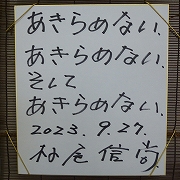 あきらめない、
あきらめない、
そして
あきらめない、
2023.9.27.
村尾信尚